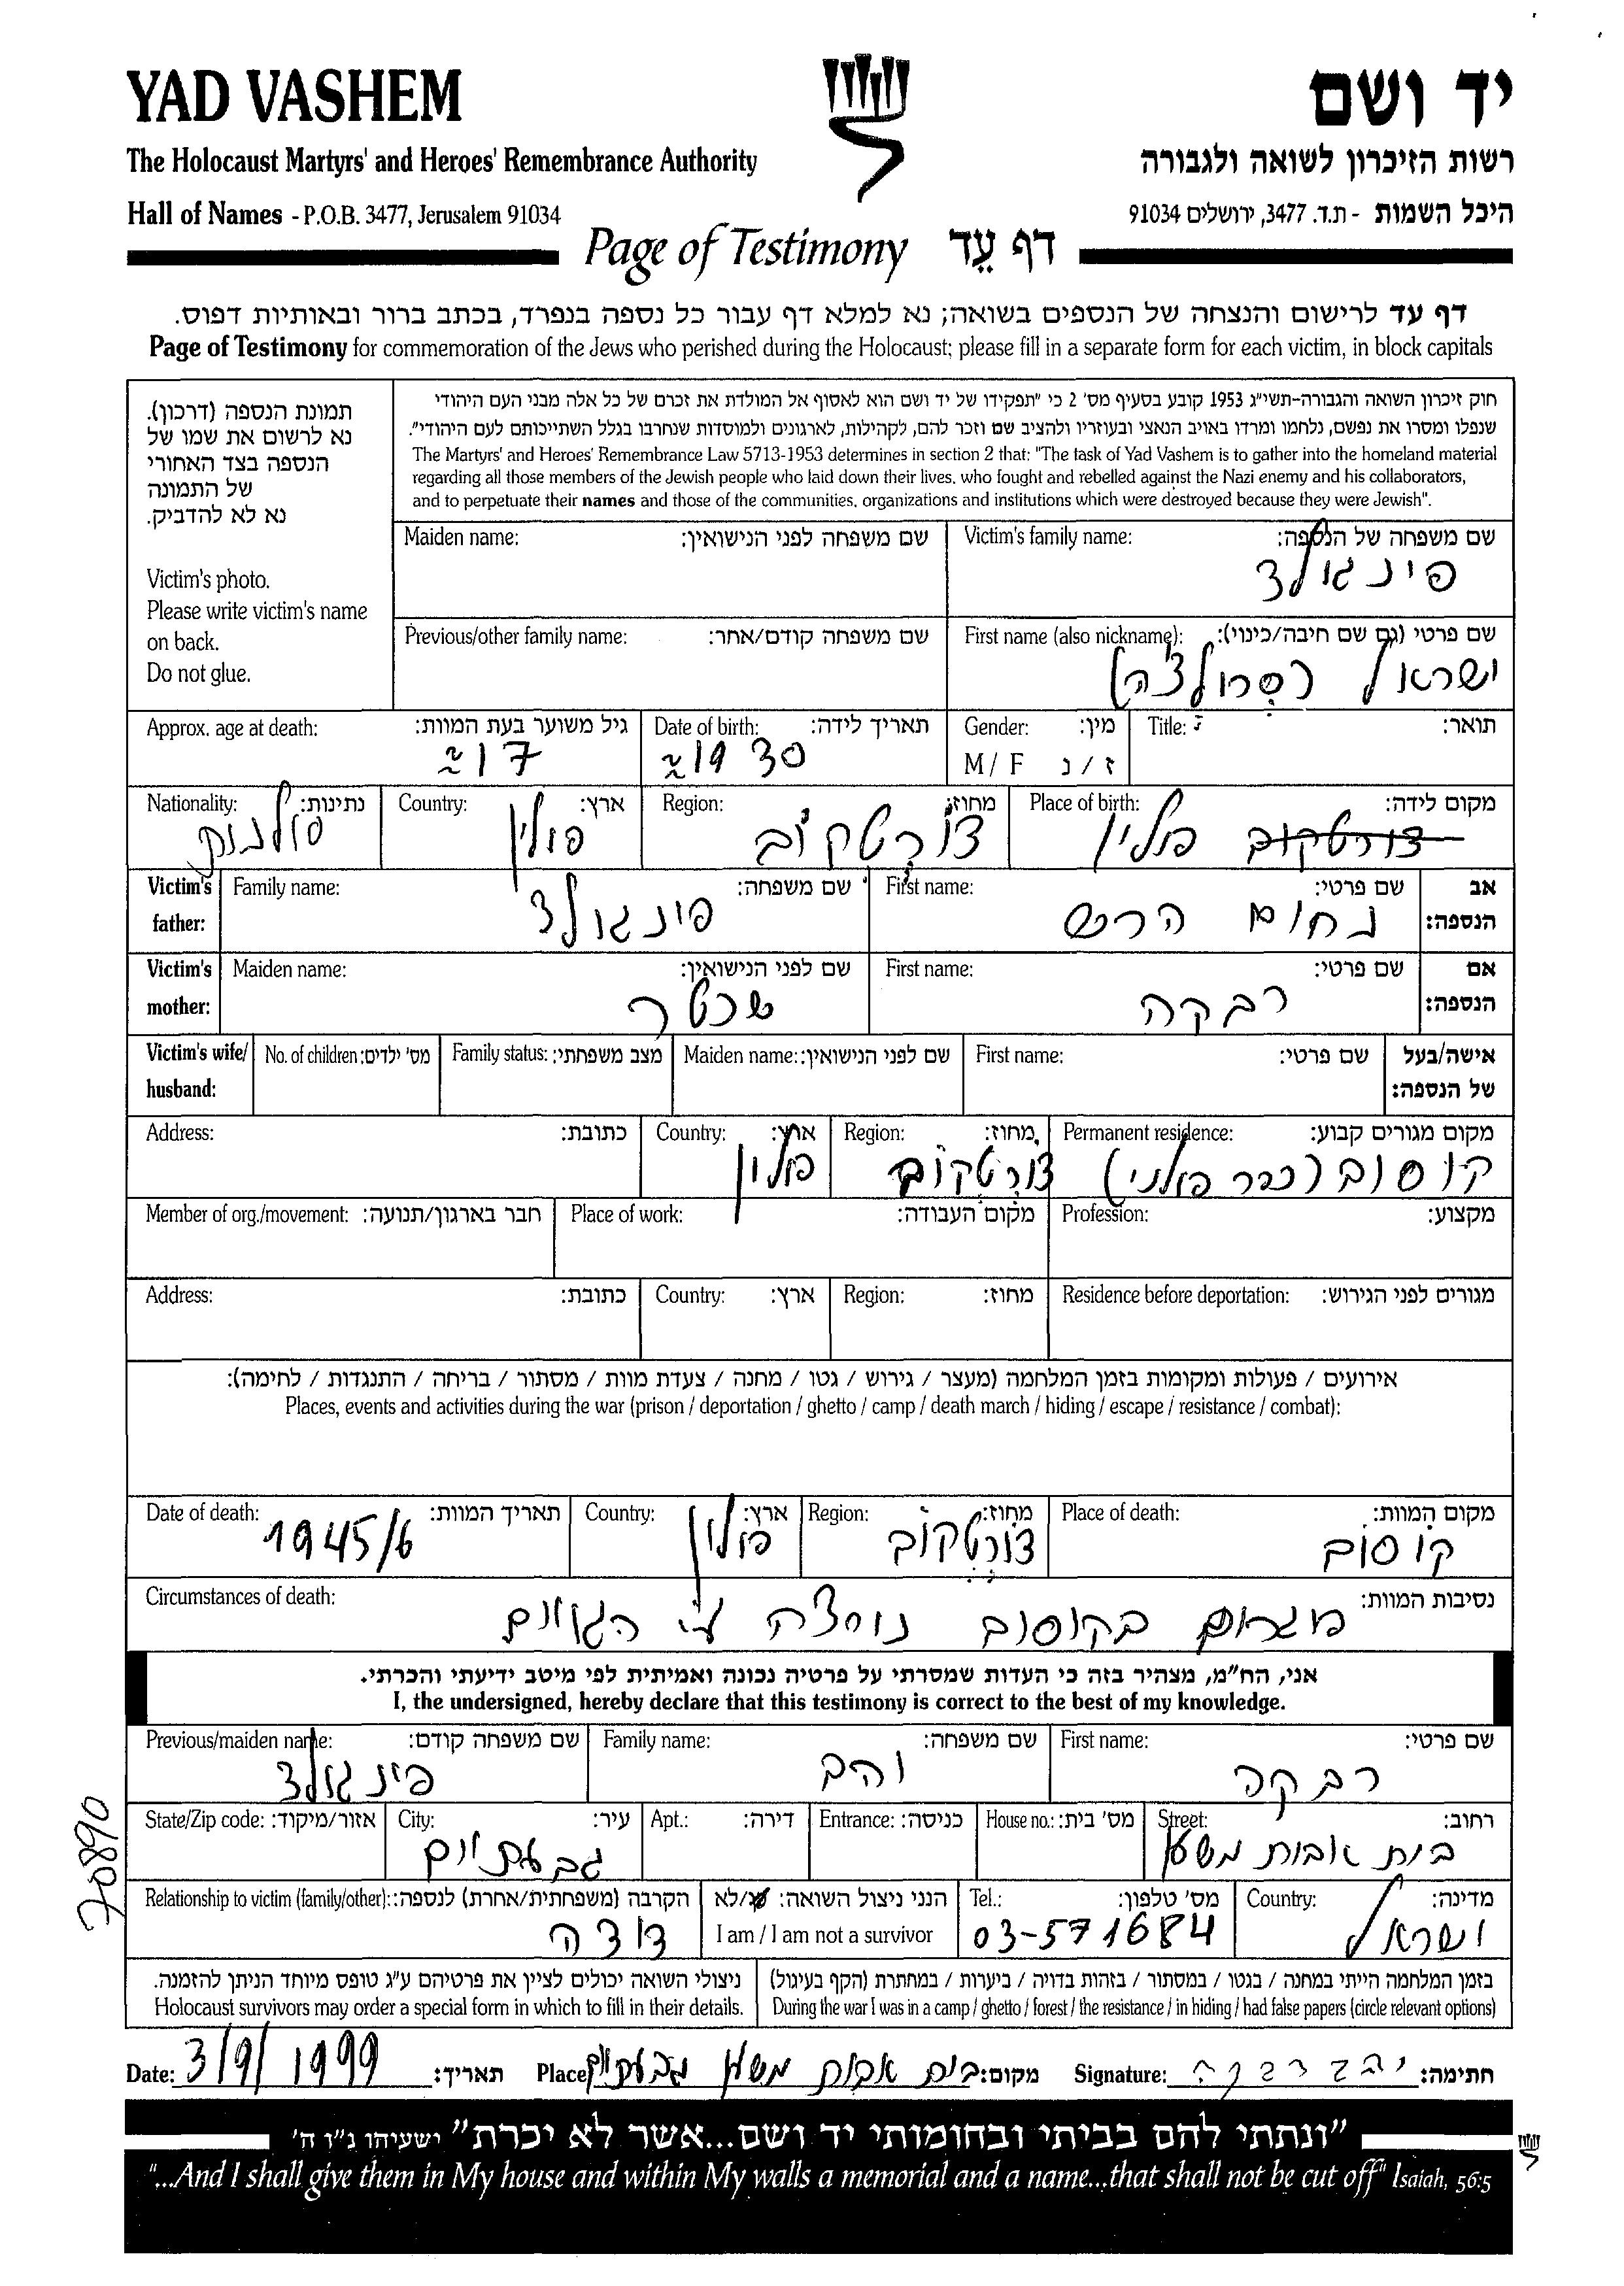 YAD VASHEM
יד ושם
The Holocaust Martyrs' and Heroes' Remembrance Authority
רשות הזיכרון לשואה ולגבורה
Hall of Names - P.O.B. 3477, Jerusalem 91034
היכל השמות - ת.ד. 3477, ירושלים 91034
Page of Testimony דף עֵד
דף עד לרישום והנצחה של הנספים בשואה; נא למלא דף עבור כל נספה בנפרד, בכתב ברור ובאותיות דפוס.
Page of Testimony for commemoration of the Jews who perished during the Holocaust; please fill in a separate form for each victim, in block capitals
תמונת הנספה (דרכון).
נא לרשום את שמו של
הנספה בצד האחורי
של התמונה
נא לא להדביק.
Victim's photo.
Please write victim's name
on back.
Do not glue.
חוק זיכרון השואה והגבורה-תשי"ג 1953 קובע בסעיף מס' 2 כי "תפקידו של יד ושם הוא לאסוף אל המולדת את זכרם של כל אלה מבני העם היהודי
שנפלו ומסרו את נפשם, נלחמו ומרדו באויב הנאצי ובעוזריו ולהציב שם וזכר להם, לקהילות, לארגונים ולמוסדות שנחרבו בגלל השתייכותם לעם היהודי".
The Martyrs' and Heroes' Remembrance Law 5713-1953 determines in section 2 that: "The task of Yad Vashem is to gather into the homeland material
regarding all those members of the Jewish people who laid down their lives, who fought and rebelled against the Nazi enemy and his collaborators,
and to perpetuate their names and those of the communities, organizations and institutions which were destroyed because they were Jewish".
Victim's family name: שם משפחה של הנספה:
פינגולד
Maiden name: שם משפחה לפני הנישואין:
First name (also nickname): שם פרטי (גם שם חיבה/כינוי):
ישראל (סרולצ'ה)
Previous/other family name: שם משפחה קודם/אחר:
Title: תואר:
Gender: מין:
M / F ז / נ
Date of birth: תאריך לידה:
≈1930
Approx. age at death: גיל משוער בעת המוות:
≈17
Place of birth: מקום לידה:
צורטקוב פולין
Region: מחוז:
צורטקוב
Country: ארץ:
פולין
Nationality: נתינות:
פולנית
אב הנספה:
First name: שם פרטי:
נחום הרש
Family name: שם משפחה:
פינגולד
Victim's father:
אם הנספה:
First name: שם פרטי:
רבקה
Maiden name: שם לפני הנישואין:
שכטר
Victim's mother:
אישה/בעל של הנספה:
First name: שם פרטי:
Maiden name: שם לפני הנישואין:
Family status: מצב משפחתי:
No. of children: מס' ילדים:
Victim's wife/ husband:
Permanent residence: מקום מגורים קבוע:
קוסוב (כפר פולני)
Region: מחוז:
צורטקוב
Country: ארץ:
פולין
Address: כתובת:
Profession: מקצוע:
Place of work: מקום העבודה:
Member of org./movement: חבר בארגון/תנועה:
Residence before deportation: מגורים לפני הגירוש:
Region: מחוז:
Country: ארץ:
Address: כתובת:
אירועים / פעולות ומקומות בזמן המלחמה (מעצר / גירוש / גטו / מחנה / צעדת מוות / מסתור / בריחה / התנגדות / לחימה):
Places, events and activities during the war (prison / deportation / ghetto / camp / death march / hiding / escape / resistance / combat):
Place of death: מקום המוות:
קוסוב
Region: מחוז:
צורטקוב
Country: ארץ:
פולין
Date of death: תאריך המוות:
1945/6
Circumstances of death: נסיבות המוות:
פוגרום בקוסוב נרצח ע"י הגויים
אני, הח"מ, מצהיר בזה כי העדות שמסרתי על פרטיה נכונה ואמיתית לפי מיטב ידיעתי והכרתי.
I, the undersigned, hereby declare that this testimony is correct to the best of my knowledge.
First name: שם פרטי:
רבקה
Family name: שם משפחה:
והב
Previous/maiden name: שם משפחה קודם:
פינגולד
Street: רחוב:
בית אבות משען
House no.: מס' בית:
Entrance: כניסה:
Apt.: דירה:
City: עיר:
גבעתיים
State/Zip code: אזור/מיקוד:
70890
Country: מדינה:
ישראל
Tel.: מס' טלפון:
03-571684
הנני ניצול השואה: כן/לא
I am / I am not a survivor
Relationship to victim (family/other): הקרבה (משפחתית/אחרת) לנספה:
דודה
בזמן המלחמה הייתי במחנה / בגטו / במסתור / בזהות בדויה / ביערות / במחתרת (הקף בעיגול)
During the war I was in a camp / ghetto / forest / the resistance / in hiding / had false papers (circle relevant options)
ניצולי השואה יכולים לציין את פרטיהם ע"ג טופס מיוחד הניתן להזמנה.
Holocaust survivors may order a special form in which to fill in their details.
Date: 3/9/1999 תאריך:
Place: בית אבות משען גבעתיים מקום:
Signature: והב רבקה חתימה:
"ונתתי להם בביתי ובחומותי יד ושם...אשר לא יכרת" ישעיהו נ"ו ה'
"...And I shall give them in My house and within My walls a memorial and a name...that shall not be cut off" Isaiah, 56:5